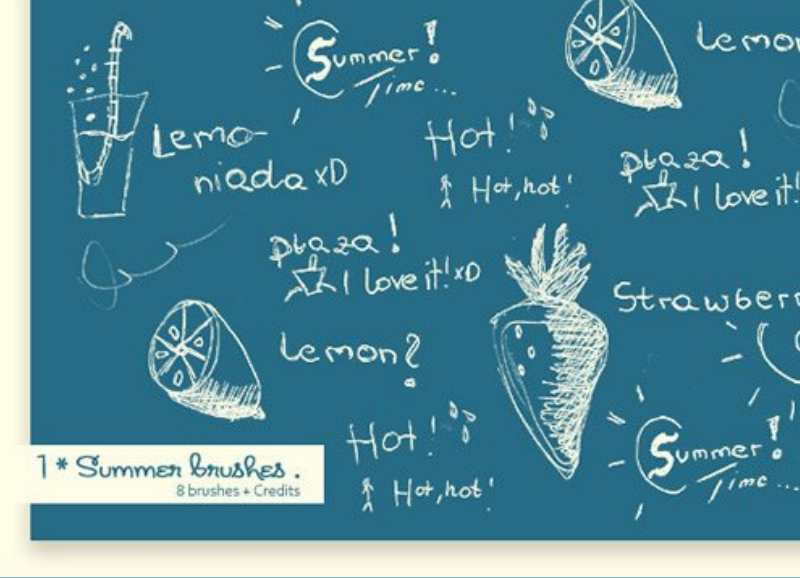 Summer!
Time...
Lemo-
niada xD
Hot!
Hot, hot!
plaza!
I love it!
plaza!
I love it! xD
Lemon?
Hot!
Hot, hot!
Summer!
Time...
1* Summer brushes.
8 brushes + Credits